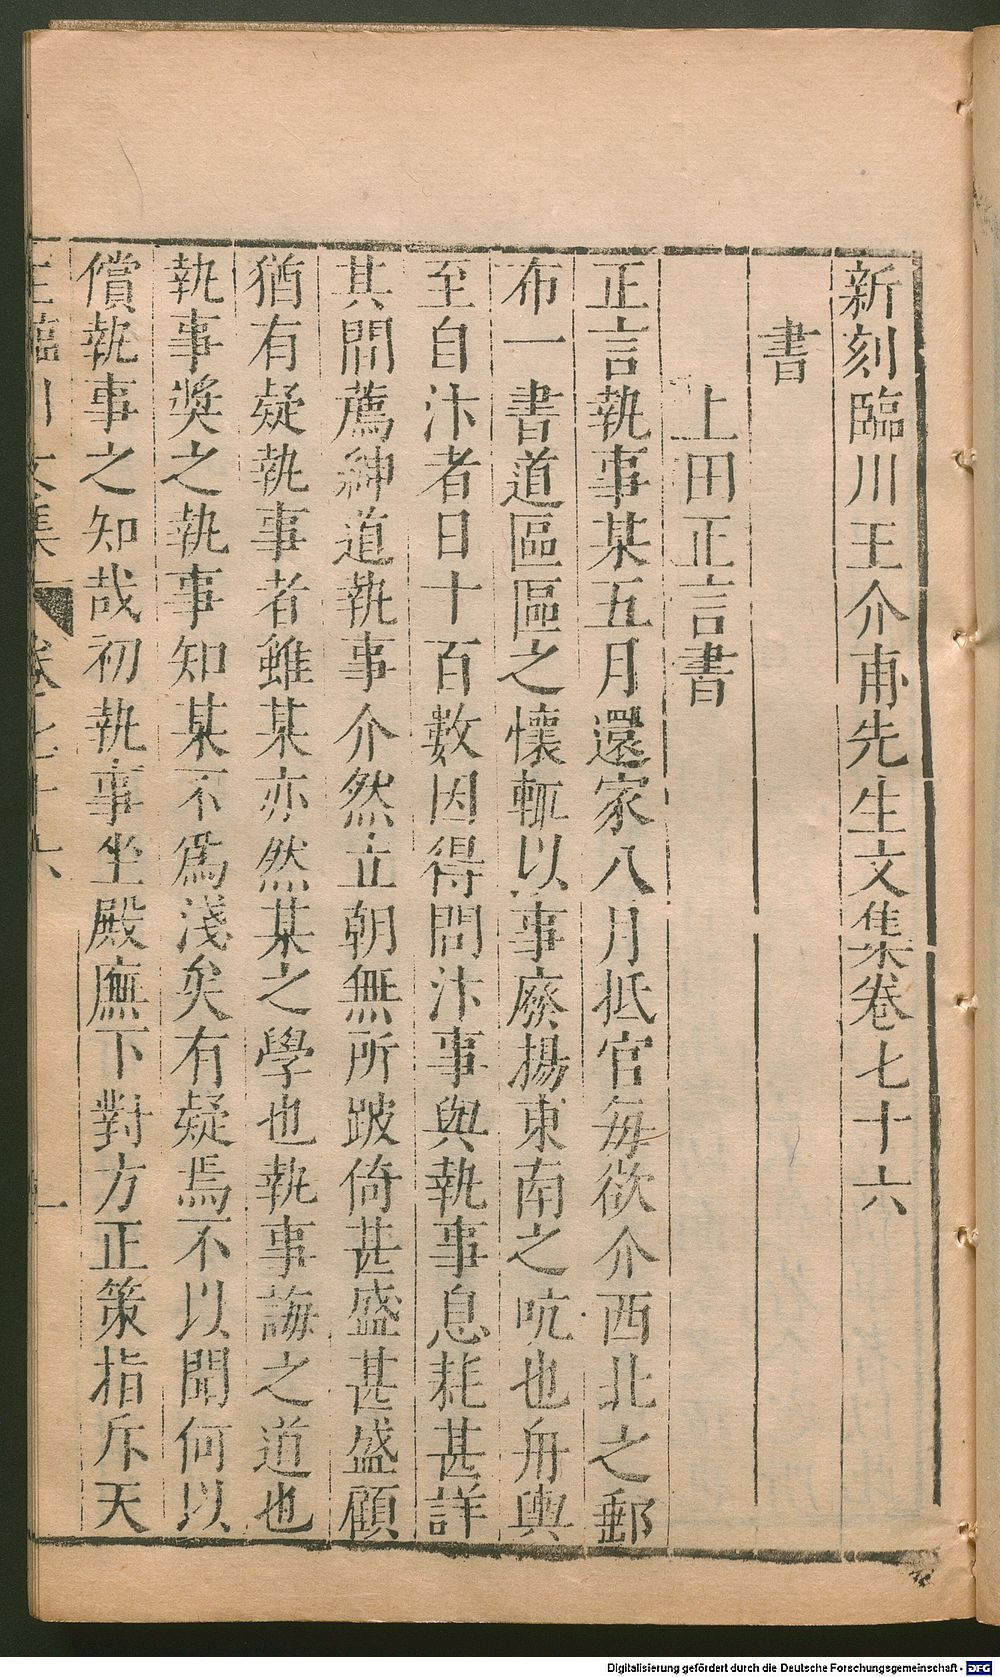 新刻臨川王介甫先生文集卷七十六
書
上田正言書
正言執事某五月還家八月抵官每欲介西北之郵
布一書道區區之懷輒以事廢揚東南之吭也舟輿
至自汴者日十百數因得問汴事與執事息耗甚詳
其間薦紳道執事介然立朝無所跛倚甚盛甚盛顧
猶有疑執事者雖某亦然某之學也執事誨之道也
執事奬之執事知某不爲淺矣有疑焉不以聞何以
償執事之知哉初執事坐殿廡下對方正策指斥天
王臨川文集 卷七十六 一
Digitalisierung gefördert durch die Deutsche Forschungsgemeinschaft - DFG